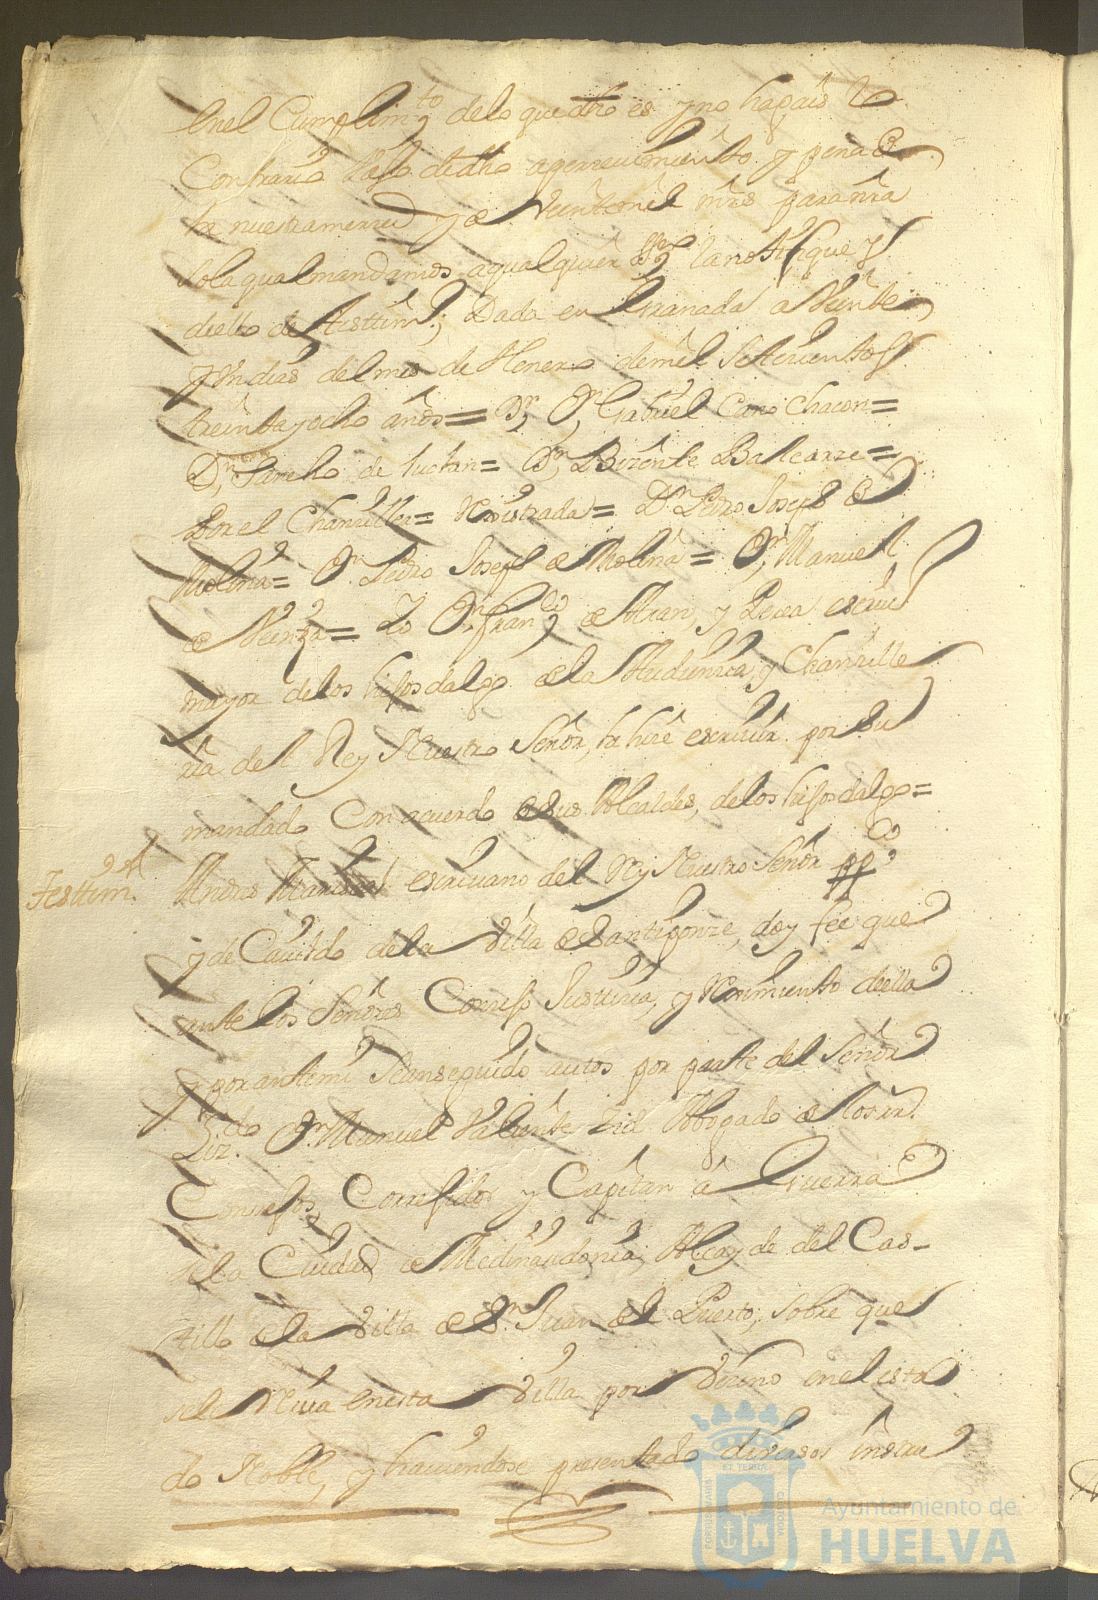 en el Cumplim.to de lo que dho es y no hagais lo
Contrario vaxo de dho apercevimiento y pena de
la nuestra merced y de Veinte mil mrs para nra
so la qual mandamos a qualquier ss.no la notifique y
de ello de Testtim.o; Dada en Granada a Veinte
y un dias del mes de Henero de mil Setecientos
treinta y ocho años = Dr. Dn. Gabriel Cano Chacon =
Dn. Sancho de = Dn. Bizente Balcarze =
Por el Chanziller = Rexistrada = Dn. Pedro Joseph de
Molina = Dn. Pedro Joseph de Molina = Dn. Manuel
de = Yo Dn. Fran.co de y escriv.
mayor de los hijosdalgo de la Audiencia y Chanzille
ria del Rey Nuestro Señor, la hize escrivir por su
mandado Con acuerdo de sus Alcaldes, de los hijosdalgo =
Testtim.o
Andres escrivano del Rey Nuestro Señor pp.co
y de Cavildo de la Villa de Santiponze, doy fee que
ante los Señores Consejo Justticia, y Reximiento de ella
y por ante mi Se an seguido autos por parte del Señor
Liz.do Dn. Manuel Valiente Abogado de los R.s
Consejos, Correjidor y Capitan a Guerra
de la Ciudad de Medinasidonia, Alcayde del Cas-
tillo de la Villa de Sn. Juan del Puerto, sobre que
se le reciva en esta Villa por Vezino en el esta
do Noble, y haviendose presentado diversos instru
Ayuntamiento de
HUELVA